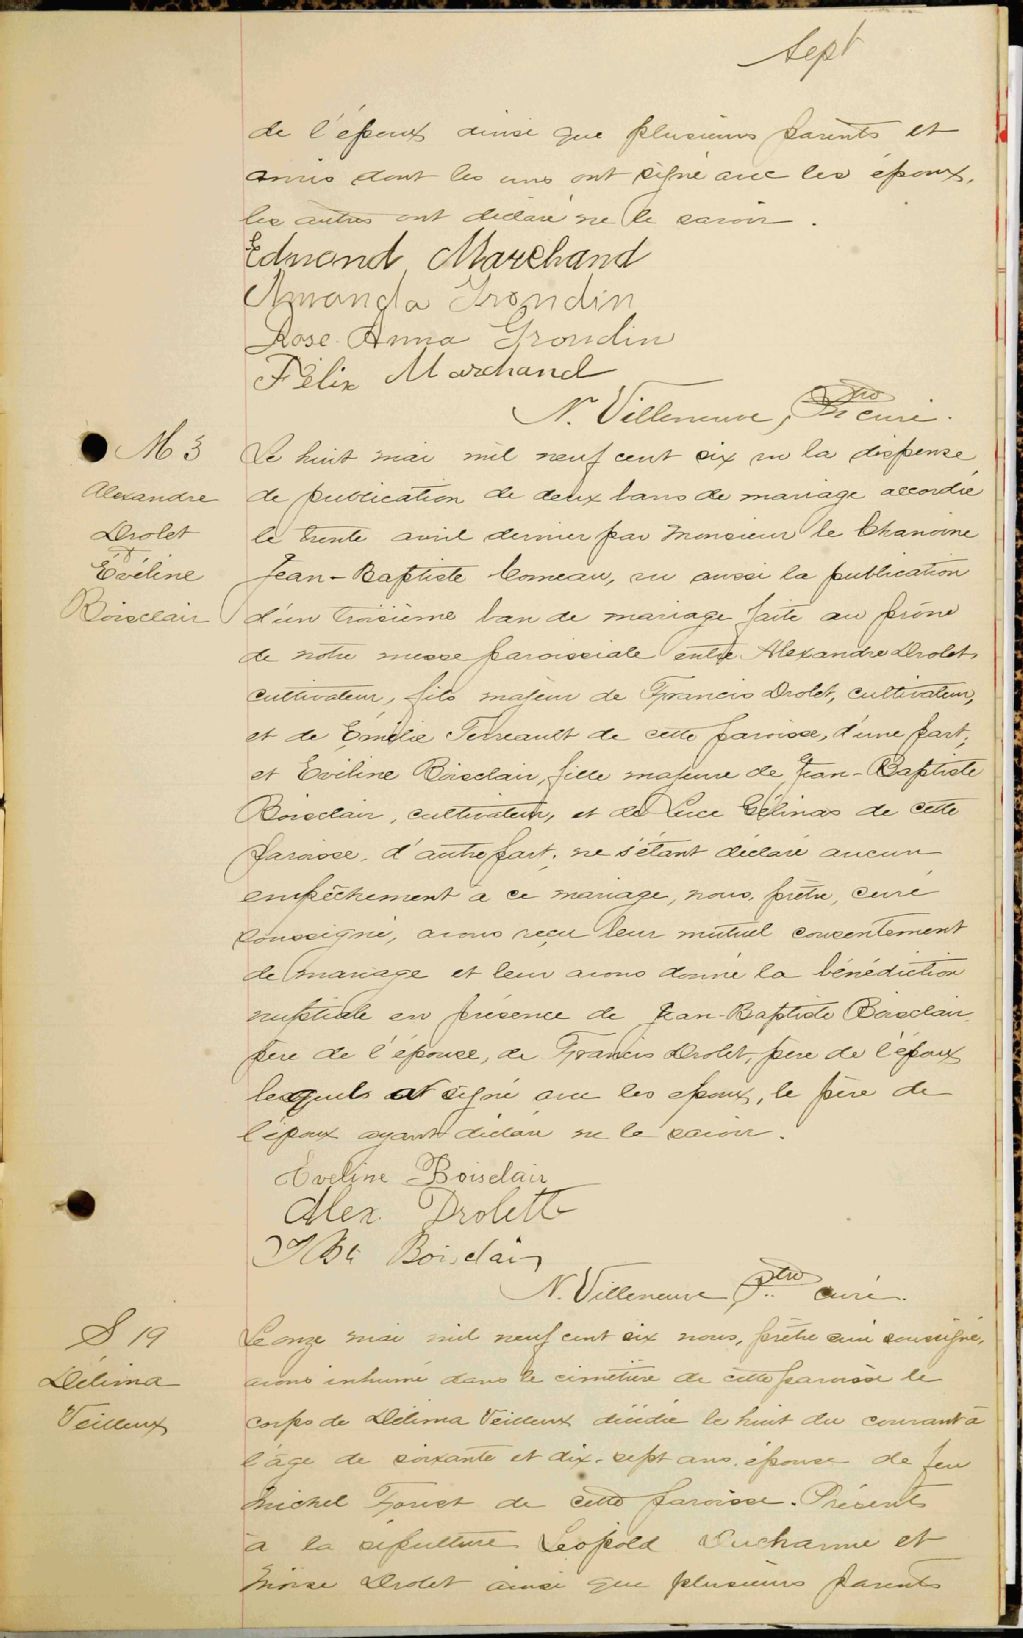 Sept
de l'époux ainsi que plusieurs parents et
amis dont les uns ont signé avec les époux,
les autres ont déclaré ne le savoir.
Edmond Marchand
Amanda Grondin
Rose-Anna Grondin
Félix Marchand
N. Villeneuve, Ptre curé.
M 3
Alexandre
Drolet
&
Évéline
Boisclair
Le huit mai mil neuf cent six vu la dispense
de publication de deux bans de mariage accordée
le trente avril dernier par Monsieur le Chanoine
Jean-Baptiste Comeau, vu aussi la publication
d'un troisième ban de mariage faite au prône
de notre messe paroissiale entre Alexandre Drolet
cultivateur, fils majeur de Francis Drolet, cultivateur,
et de Émélie Terreault de cette paroisse, d'une part;
et Eviline Boisclair, fille majeure de Jean-Baptiste
Boisclair, cultivateur, et de Luce Gélinas de cette
paroisse, d'autre part. ne s'étant déclaré aucun
empêchement à ce mariage, nous, prêtre, curé
soussigné, avons reçu leur mutuel consentement
de mariage et leur avons donné la bénédiction
nuptiale en présence de Jean-Baptiste Boisclair
père de l'épouse, de Francis Drolet, père de l'époux
lesquels ont signé avec les époux, le père de
l'époux ayant déclaré ne le savoir.
Eveline Boisclair
Alex. Drolette
J Bte Boisclair
N. Villeneuve, Ptre curé.
S 19
Délima
Veilleux
Le onze mai mil neuf cent six nous, prêtre curé soussigné,
avons inhumé dans le cimetière de cette paroisse le
corps de Délima Veilleux décédée le huit du courant à
l'âge de soixante et dix-sept ans. épouse de feu
Michel Forest de cette paroisse. Présents
à la sépulture Léopold Ducharme et
Moïse Drolet ainsi que plusieurs parents